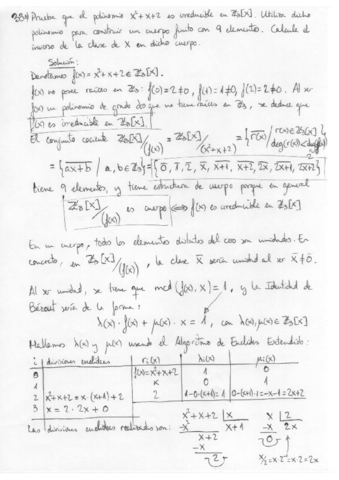 Prueba que el polinomio x²+x+2 es irreducible en Z₃[x]. Utiliza dicho
polinomio para construir un cuerpo finito con 9 elementos. Calcula el
inverso de la clase de x en dicho cuerpo.
Solución:
Denotamos f(x)=x²+x+2 ∈ Z₃[x].
f(x) no posee raíces en Z₃: f(0)=2≠0, f(1)=1≠0, f(2)=2≠0. Al ser
f(x) un polinomio de grado dos que no tiene raíces en Z₃, se deduce que
f(x) es irreducible en Z₃[x]
El conjunto cociente Z₃[x]/(f(x)) = Z₃[x]/(x²+x+2) = {r(x) / r(x)∈Z₃[x], deg(r(x))<deg(f(x))}
= {ax+b / a,b∈Z₃} = {0, 1, 2, x, x+1, x+2, 2x, 2x+1, 2x+2}
tiene 9 elementos, y tiene estructura de cuerpo porque en general
Z₃[x]/(f(x)) es cuerpo ⟺ f(x) es irreducible en Z₃[x]
En un cuerpo, todos los elementos distintos del cero son unidades. En
concreto, en Z₃[x]/(f(x)), la clase x̄ sería unidad al ser x̄≠0̄.
Al ser unidad, se tiene que mcd(f(x), x)=1, y la Identidad de
Bézout sería de la forma:
λ(x)·f(x) + μ(x)·x = 1, con λ(x), μ(x)∈Z₃[x]
Hallemos λ(x) y μ(x) usando el Algoritmo de Euclides Extendido:
i | divisiones euclídeas | rᵢ(x) | λᵢ(x) | μᵢ(x)
0 | | f(x)=x²+x+2 | 1 | 0
1 | | x | 0 | 1
2 | x²+x+2=x·(x+1)+2 | 2 | 1-0·(x+1)=1 | 0-(x+1)·1=-x-1=2x+2
3 | x=2·2x+0
Las divisiones euclídeas realizadas son:
x²+x+2 | x
-x² x+1
x+2
-x
2
x | 2
-x 2x
0
x/2=x·2⁻¹=x·2=2x